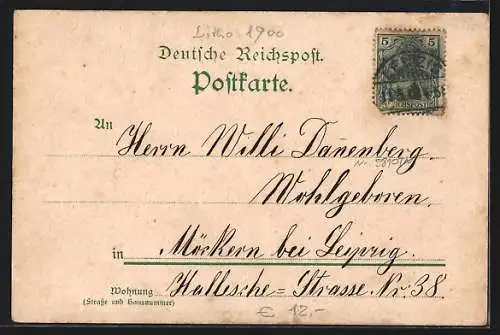 Litho 1900
Deutsche Reichspost.
Postkarte.
5 5
REICHSPOST
An Herrn Willi Danenberg.
Wohlgeboren.
in Möckern bei Leipzig.
Wohnung Hallesche=Strasse Nr. 38.
(Straße und Hausnummer)
€ 12.-